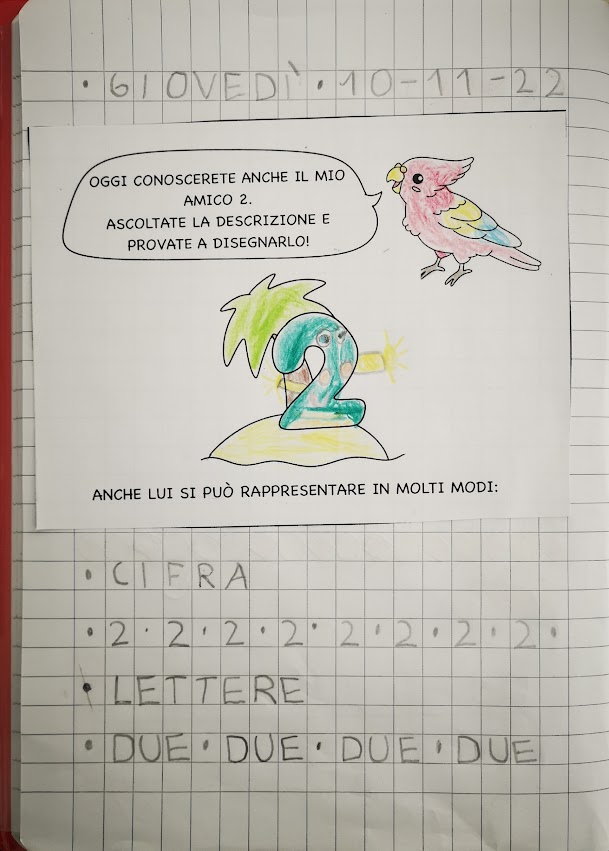 • GIOVEDÌ • 10-11-22
OGGI CONOSCERETE ANCHE IL MIO
AMICO 2.
ASCOLTATE LA DESCRIZIONE E
PROVATE A DISEGNARLO!
2
ANCHE LUI SI PUÒ RAPPRESENTARE IN MOLTI MODI:
• CIFRA
• 2 • 2 • 2 • 2 • 2 • 2 • 2 • 2 •
• LETTERE
• DUE • DUE • DUE • DUE